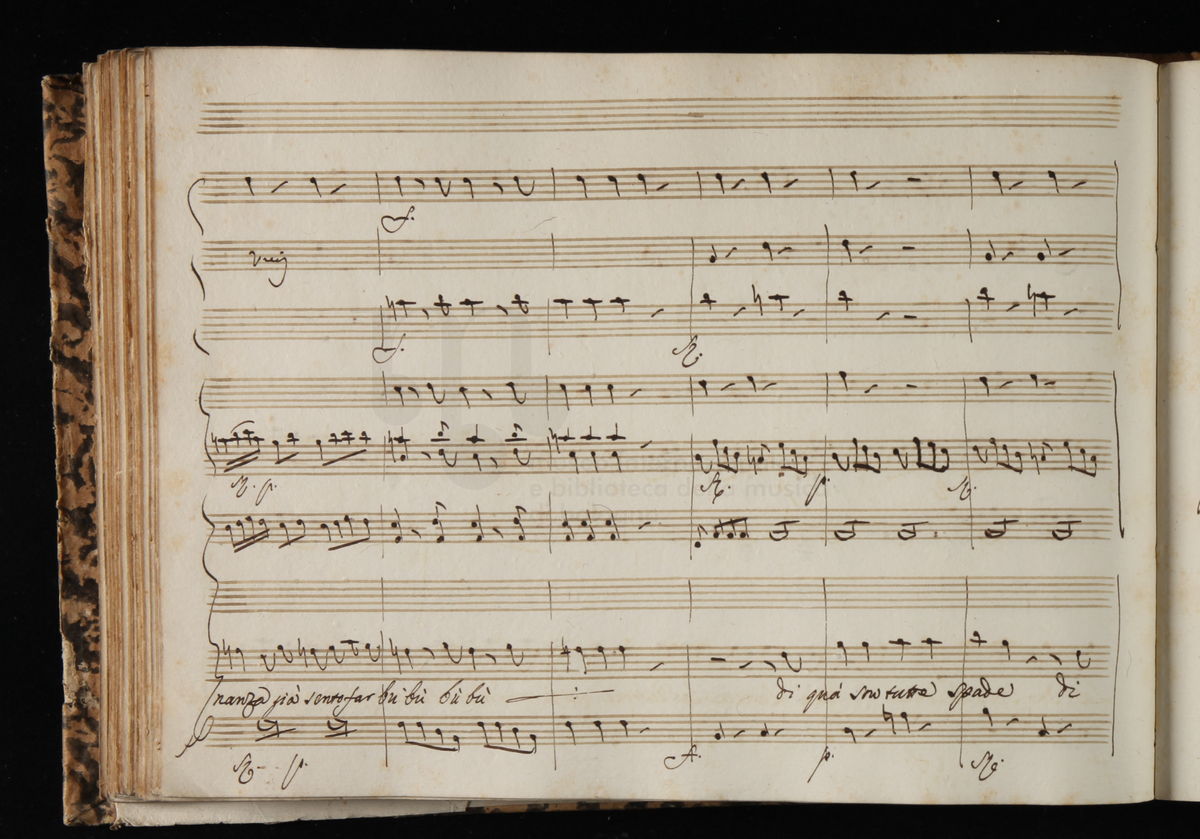 f.
Unis
f.
R.
R. p.
R.
p.
R.
e biblioteca della musica
nanza già sento far bù bù bù bù
di quà son tutte spade di
R. p.
f.
p.
R.